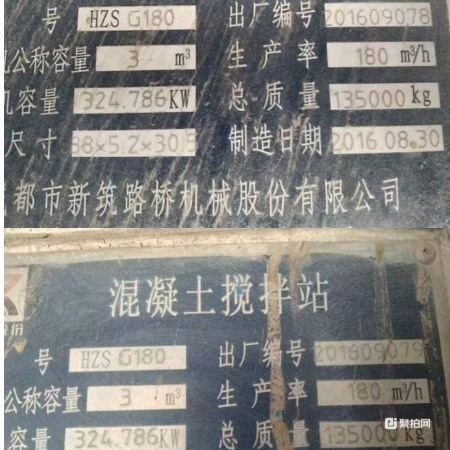 号 HZS G180 出厂编号 201609078
公称容量 3 m³ 生产率 180 m³/h
机容量 324.786KW 总质量 135000kg
尺寸 38×5.2×30.5 制造日期 2016.08.30
都市新筑路桥机械股份有限公司
混凝土搅拌站
份
号 HZS G180 出厂编号 201609079
公称容量 3 m³ 生产率 180 m³/h
容量 324.786KW 总质量 135000kg
聚拍网